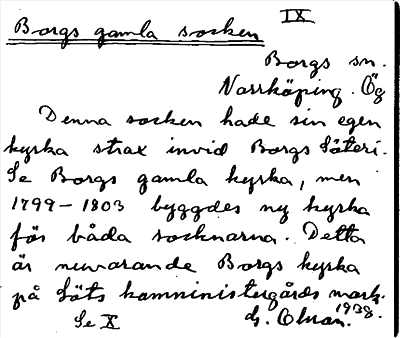 IX
Borgs gamla socken
Borgs sn.
Norrköping. Ög
Denna socken hade sin egen
kyrka strax invid Borgs Säteri.
Se Borgs gamla kyrka, men
1799-1803 byggdes ny kyrka
för båda socknarna. Detta
är nuvarande Borgs kyrka
på Löts komministergårds mark.
Se X
G. 1938.